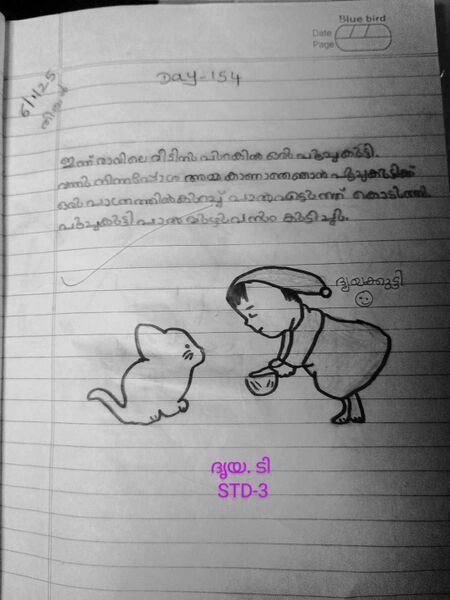 Blue bird
Date
Page
6/1/25
തിങ്കൾ
Day-154
ഇന്ന് രാവിലെ വീടിനു പിറകിൽ ഒരു പൂച്ചക്കുട്ടി.
വന്നു നിന്നപ്പോൾ അമ്മ കാണാതെ ഞാൻ പൂച്ചകുട്ടിക്ക്
ഒരു പാത്രത്തിൽ കുറച്ച് പാൽ എടുത്ത് കൊടുത്തു
പൂച്ചകുട്ടി പാൽ മുഴുവനും കുടിച്ചു.
ദൃയക്കുട്ടി
ദൃയ. ടി
STD-3